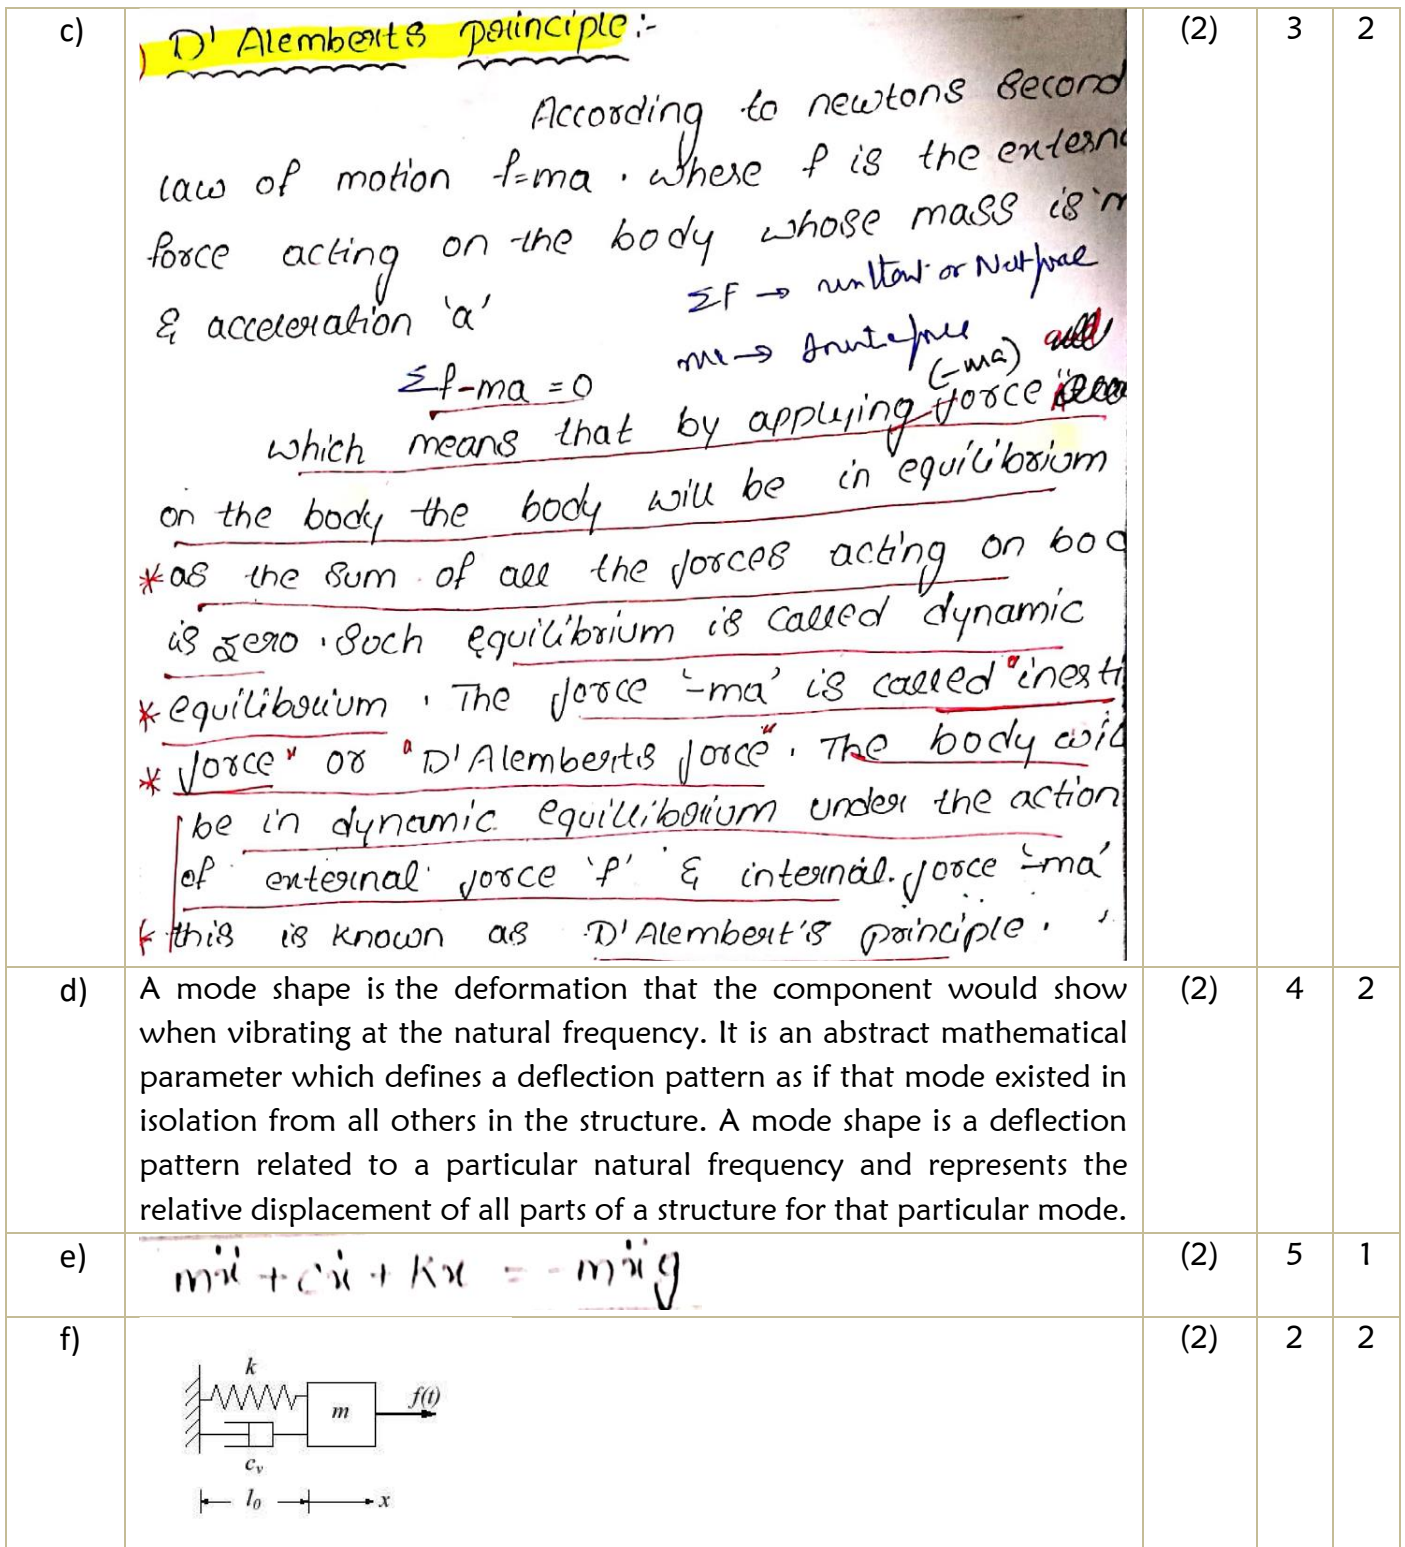 c)
D' Alemberts principle :-
(2) 3 2
According to newtons second
law of motion f=ma . where f is the extern
force acting on the body whose mass is 'm
& acceleration 'a'
ΣF → or Net force
Σf-ma = 0
(-ma)
which means that by applying force
on the body the body will be in equilibrium
* as the sum of all the forces acting on bod
is zero . Such equilibrium is called dynamic
* equilibrium . The force '-ma' is called "inerti
* force" or "D'Alemberts force" . The body wil
be in dynamic equillibrium under the action
of external force 'f' & internal force '-ma'
* this is known as D'Alembert's principle .
d)
A mode shape is the deformation that the component would show
(2) 4 2
when vibrating at the natural frequency. It is an abstract mathematical
parameter which defines a deflection pattern as if that mode existed in
isolation from all others in the structure. A mode shape is a deflection
pattern related to a particular natural frequency and represents the
relative displacement of all parts of a structure for that particular mode.
e)
mẍ + cẋ + Kx = - mẍg
(2) 5 1
f)
(2) 2 2
k
m
f(t)
cᵥ
l₀
x